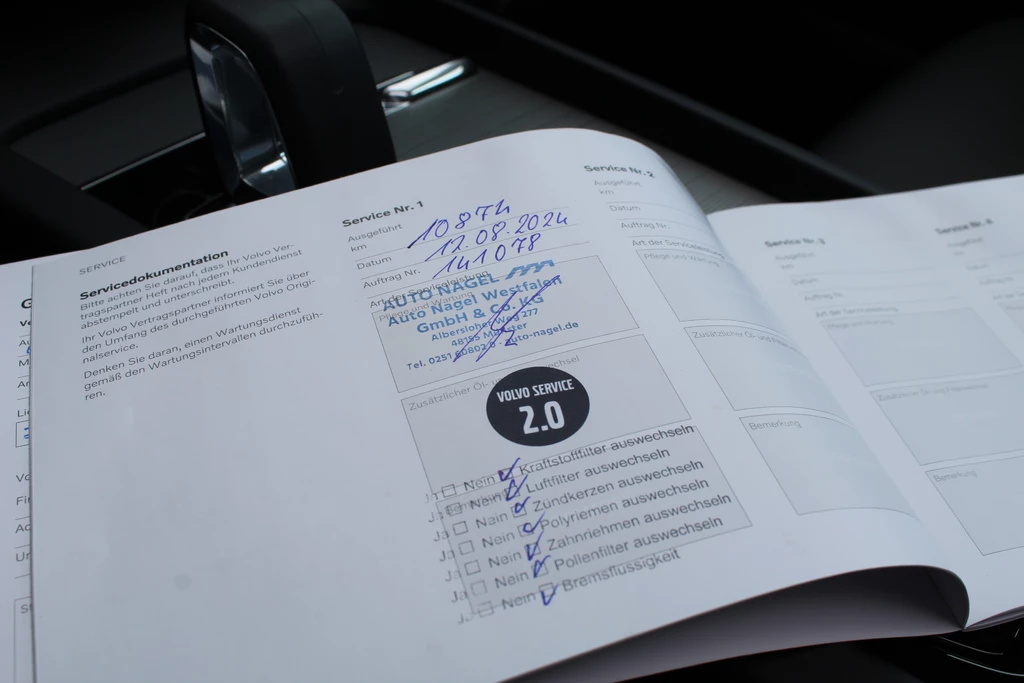 SERVICE
Servicedokumentation
Bitte achten Sie darauf, dass Ihr Volvo Ver-
tragspartner Heft nach jedem Kundendienst
abstempelt und unterschreibt.
Ihr Volvo Vertragspartner informiert Sie über
den Umfang des durchgeführten Volvo Origi-
nalservice.
Denken Sie daran, einen Wartungsdienst
gemäß den Wartungsintervallen durchzufüh-
ren.
Service Nr. 1
Ausgeführt
km 10874
Datum 12.08.2024
Auftrag Nr. 141078
Art der Serviceleistung
Pflege und Wartung
AUTO NAGEL
Auto Nagel Westfalen
GmbH & Co. KG
Albersloher Weg 277
48155 Münster
Tel. 0251 60802 0 · auto-nagel.de
Zusätzlicher Öl- wechsel
VOLVO SERVICE
2.0
Ja Nein Kraftstofffilter auswechseln
Ja Nein Luftfilter auswechseln
Ja Nein Zündkerzen auswechseln
Ja Nein Polyriemen auswechseln
Ja Nein Zahnriehmen auswechseln
Ja Nein Pollenfilter auswechseln
Ja Nein Bremsflüssigkeit
Service Nr. 2
Ausgeführt
km
Datum
Auftrag Nr.
Art der Serviceleistung
Pflege und Wartung
Zusätzlicher Öl- und
Bemerkung
Service Nr. 3
Ausgeführt
km
Datum
Auftrag Nr.
Art der Serviceleistung
Pflege und Wartung
Zusätzlicher Öl- und
Bemerkung
Service Nr. 4